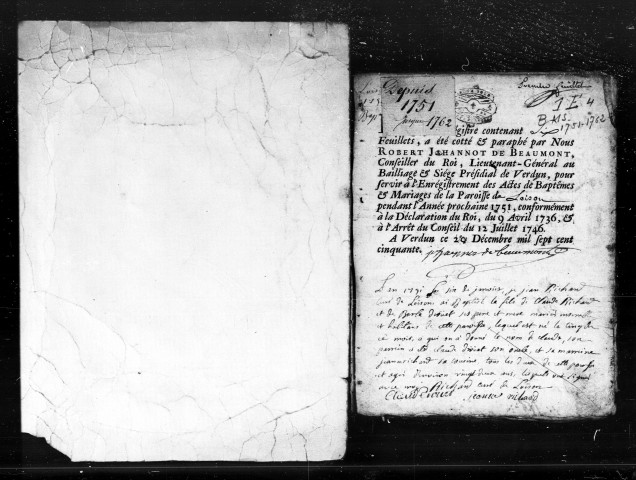 Premier feuillet
Depuis
1751
jusque 1762
1 E 4
BMS
1751-1762
gistre contenant Six
Feuillets, a été cotté & paraphé par Nous
ROBERT JEHANNOT DE BEAUMONT,
Conseiller du Roi, Lieutenant-Général au
Bailliage & Siége Présidial de Verdun, pour
servir à l'Enrégistrement des Actes de Baptêmes
& Mariages de la Paroisse de Loison
pendant l'Année prochaine 1751, conformément
à la Déclaration du Roi, du 9 Avril 1736, &
à l'Arrêt du Conseil du 12 Juillet 1746.
A Verdun ce Décembre mil sept cent
cinquante. Jehannot de beaumont
L'an 1751 le six de janvier, je jean Richard
Curé de Loison ai Baptisé le fils de Claude Richard
et de Barbe drouet ses pere et mere mariés ensemble
et habitans de cette paroisse, lequel est né le cinq de
ce mois, a qui on a donné le nom de claude, son
parrain a été claude drouet son oncle, et sa marreine
jeanne richard sa cousine, tous les deux de cette paroisse
et agés d'environ vingt deux ans, lesquels ont signé
avec moi Richard curé de Loison
Claude Drouet jeanne richard